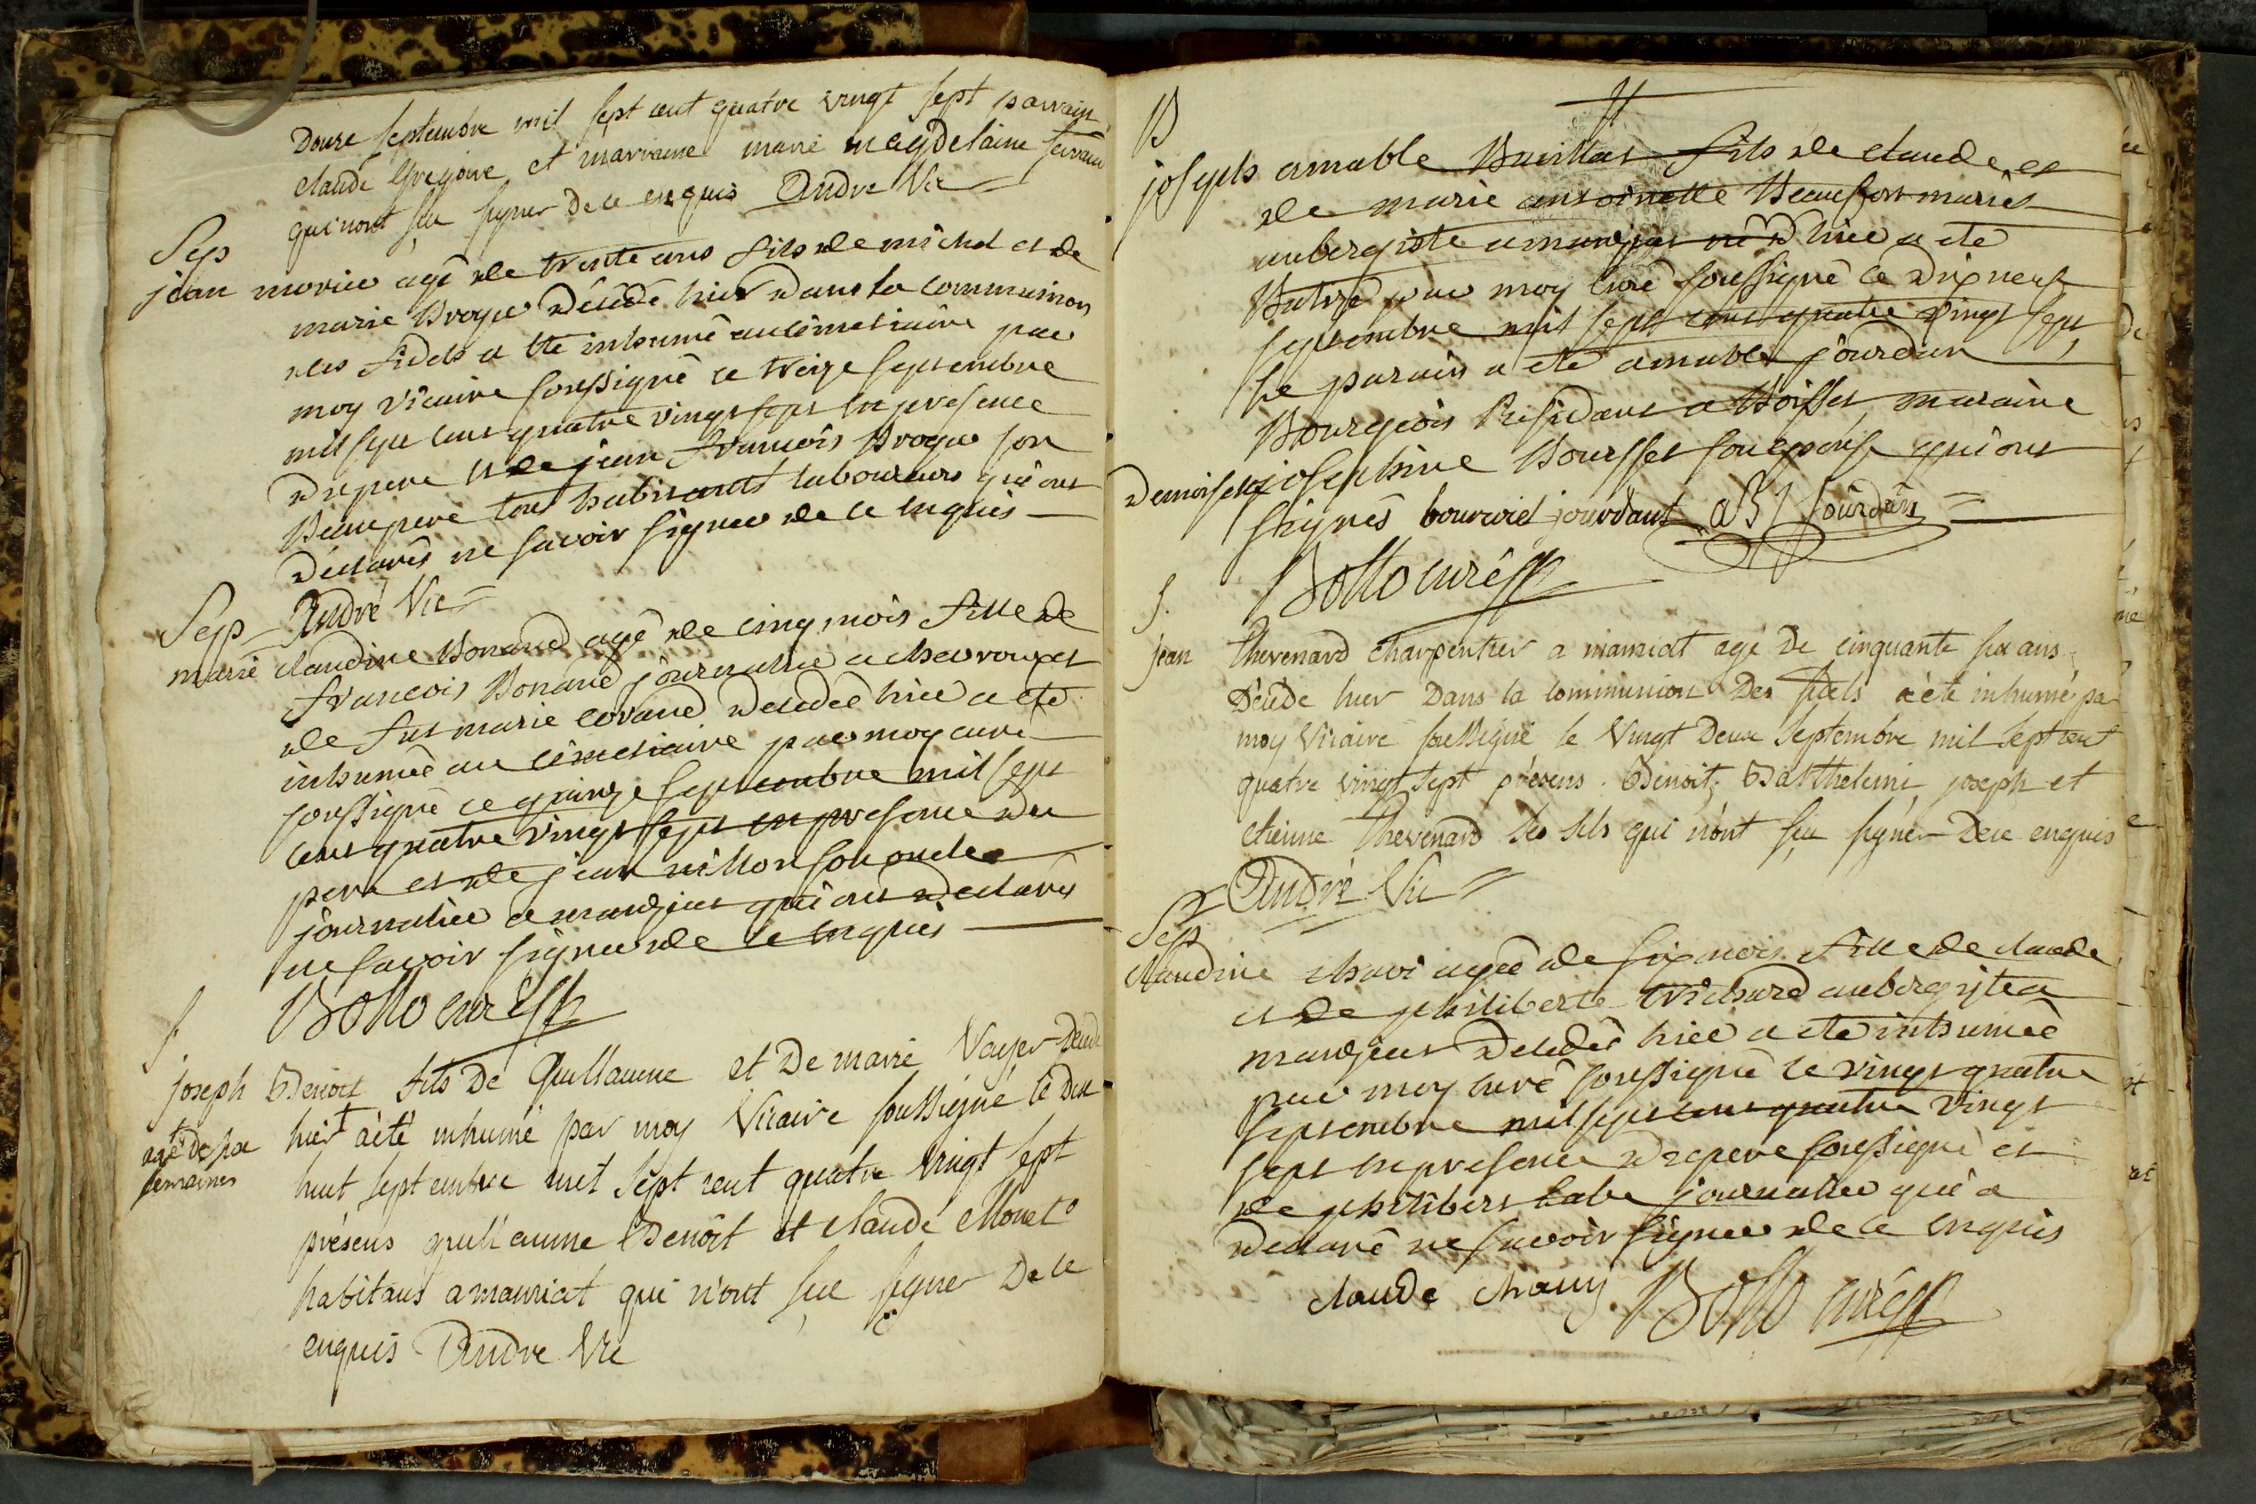 Douze septembre mil sept cent quatre vingt sept parrain
claude Gregoire et marraine marie magdelaine
qui n'ont sçu signer de ce enquis André Vic
Sep
jean morice agé de trente ans fils de michel et de
marie Broye décédé hier dans la communion
des fidels a ete inhumé au cimetiaire par
moy vicaire soussigné ce treize septembre
mil sept cent quatre vingt sept en presence
du pere et de jean francois Broye son
Beaupere tous habitants laboureurs qui ont
déclarés ne savoir signer de ce enquis
André Vic
Sep
marie claudine Bonand agé de cinq mois fille de
francois Bonand journalier a chevroux et
de fut marie decedée hier a eté
inhumée au cimetiaire par moy curé
soussigné ce quinze septembre mil sept
cent quatre vingt sept en presence du
pere et de jean son oncle
journalier a manziat qui ont declarés
ne savoir signer de ce enquis
Botto curé
S.
joseph Benoit fils de Guillaume et de marie Voyer décédé
hier + a été inhumé par moy Vicaire soussigné le dix
+ agé de six
semaines
huit septembre mil sept cent quatre vingt sept
présens guillaume Benoit et claude Monet
habitans a manziat qui n'ont sçu signer de ce
enquis André Vic
B
joseph amable fils de claude et
de marie antoinette Beaufort mariés
aubergiste a manziat né d'hier a eté
Batisé par moy curé soussigné ce dix neuf
septembre mil sept cent quatre vingt sept
le parain a eté amable jourdan
Bourgeois Residant a Boisset maraine
demoiselle josephine Boursset son epouse qui ont
signés jourdant jourdan
Botto curé
S.
jean thevenard charpentier a manziat agé de cinquante six ans
décédé hier dans la communion des fidels a été inhumé par
moy Vicaire soussigné le Vingt deux septembre mil sept cent
quatre vingt sept présens Benoit, Barthelemi joseph et
etienne thevenard ses fils qui n'ont sçu signer de ce enquis
André Vic
Sep
claudine chavi agée de six mois fille de claude
et de philiberte Trichard aubergiste a
manziat decedée hier a eté inhumée
par moy curé soussigné le vingt quatre
septembre mil sept cent quatre vingt
sept en presence du pere soussigné et
de philibert journalier qui a
declaré ne savoir signer de ce enquis
claude chavy Botto curé